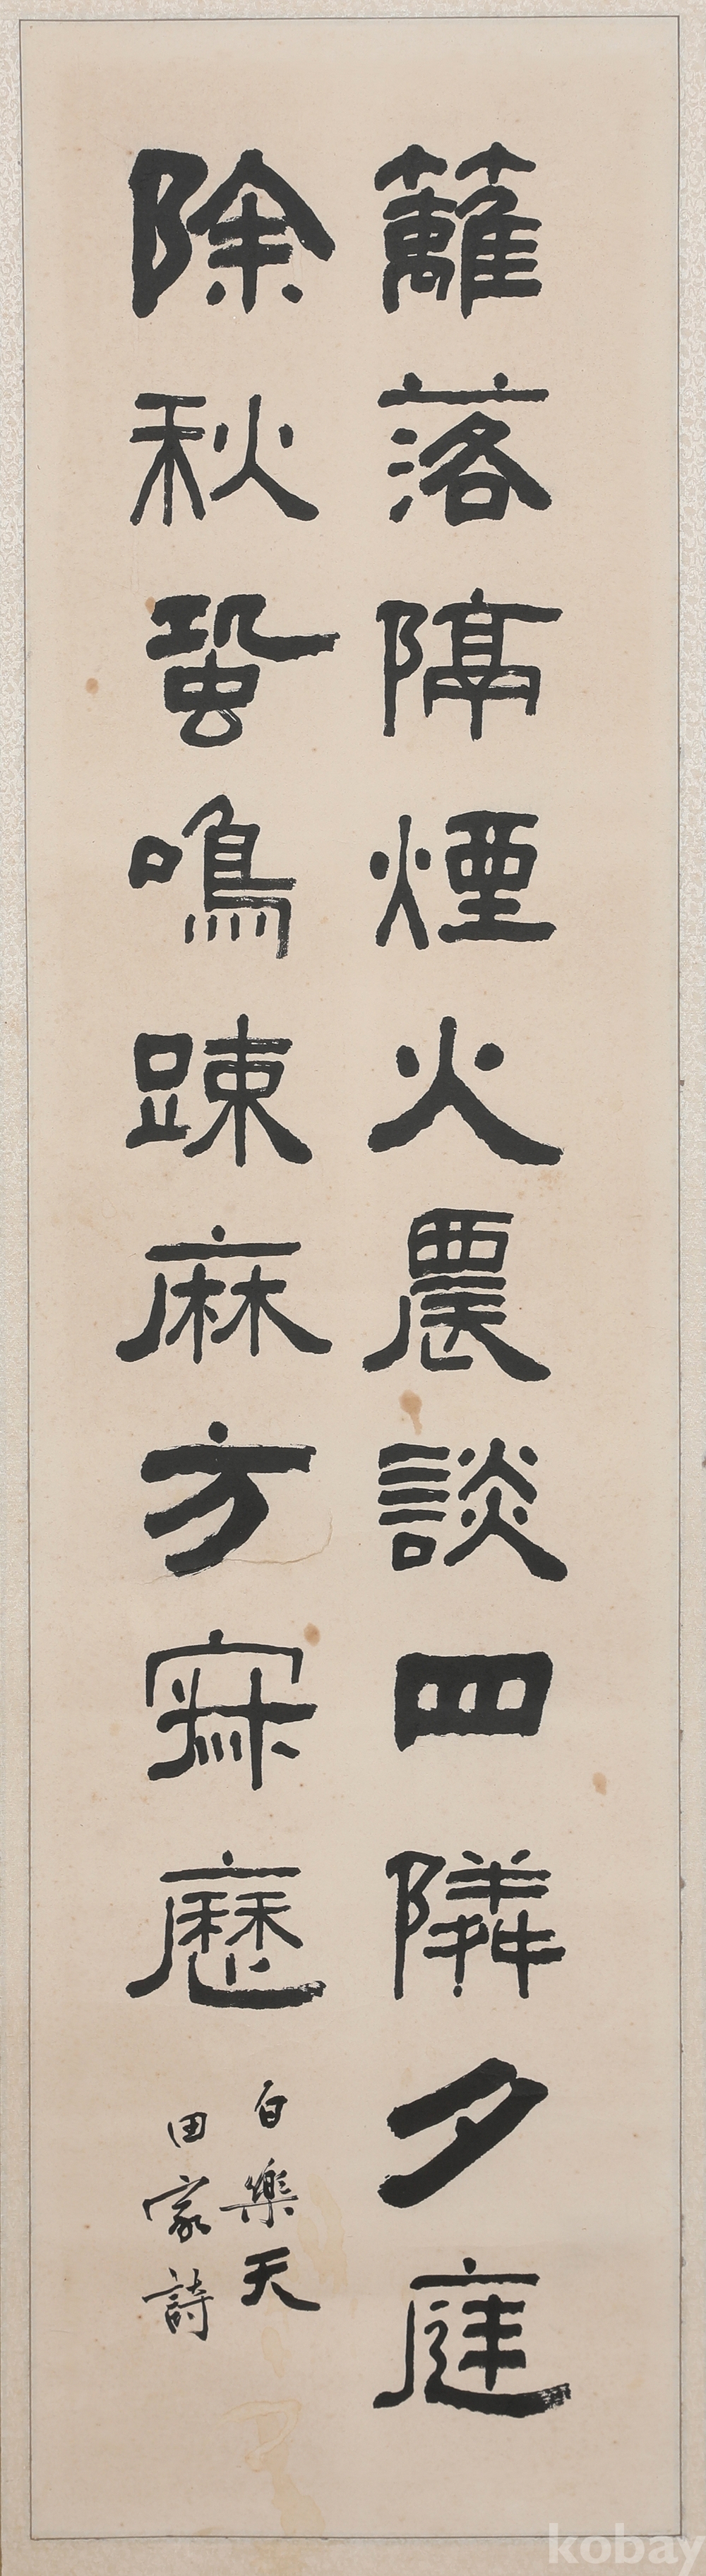 籬落隔煙火農談四隣夕庭
除秋蛩鳴踈麻方寂歷
白樂天
田家詩
kobay